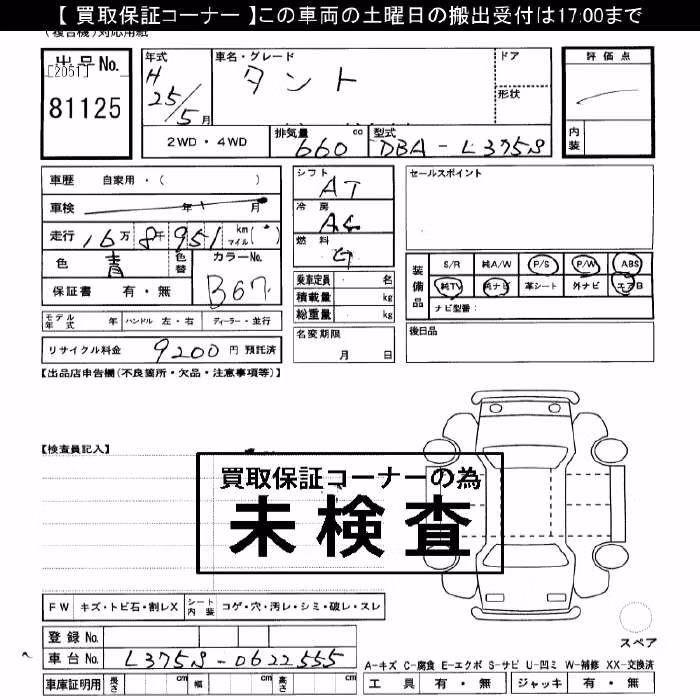 【 買取保証コーナー 】この車両の土曜日の搬出受付は17:00まで
(複合機)対応用紙
出品No.
[2051]
81125
年式
H
25/5月
車名・グレード
タント
ドア
形状
評価点
内装
2WD・4WD
排気量
660 cc
型式
DBA-L375S
車歴 自家用・( )
車検 年 月
走行 16万8千951 km マイル( * )
色 青 色替 カラーNo. B67
保証書 有・無
シフト AT
冷房 AC
燃料 ガ
乗車定員 名
積載量 kg
総重量 kg
セールスポイント
装備品
S/R 純A/W P/S P/W ABS
純TV 純ナビ 革シート 外ナビ エアB
ナビ型番:
モデル年式 年 ハンドル 左・右 ディーラー・並行
名変期限
月 日
後日品
リサイクル料金 9200 円 預託済
【出品店申告欄(不良箇所・欠品・注意事項等)】
【検査員記入】
買取保証コーナーの為
未検査
FW キズ・トビ石・割レX シート内装 コゲ・穴・汚レ・シミ・破レ・スレ
スペア
登録No.
車台No. L375S-0622555
車庫証明用 長さ cm 幅 cm 高さ cm
A-キズ C-腐食 E-エクボ S-サビ U-凹ミ W-補修 XX-交換済
工具 有・無 ジャッキ 有・無